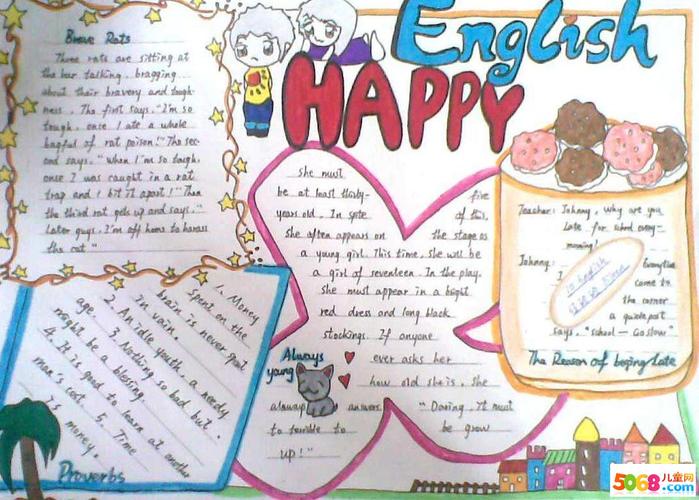 English
HAPPY
Brave Rats
Three rats are sitting at
the bar talking, bragging
about their bravery and tough-
ness. The first says, "I'm so
tough, once I ate a whole
bagful of rat poison!" The sec-
ond says, "When I'm so tough,
once I was caught in a rat
trap and I bit it apart!" Then
the third rat gets up and says, "
Later guys, I'm off home to harass
the cat."
she must
be at least thirty-five
years old. In spite of this,
she often appears on the stage as
a young girl. This time, she will be
a girl of seventeen. In the play.
she must appear in a bright
red dress and long black
stockings. If anyone
ever asks her
how old she is, she
always answers
"Daring, it must
be grow
to terrible to
up!"
Always
young
Teacher: Johnny, why are you
late for school every-
morning!
Johnny: Everytime
I come to
the corner
a guidepost
says, "school — Go slow"
In English
The Reason of being late
1. Money
spent on the
brain is never
in vain.
2. An idle youth, a needy
age. 3. Nothing so bad but
might be a blessing.
4. It is good to learn at another
man's cost. 5. Time
is money.
Proverbs
5068儿童网
www.5068.com